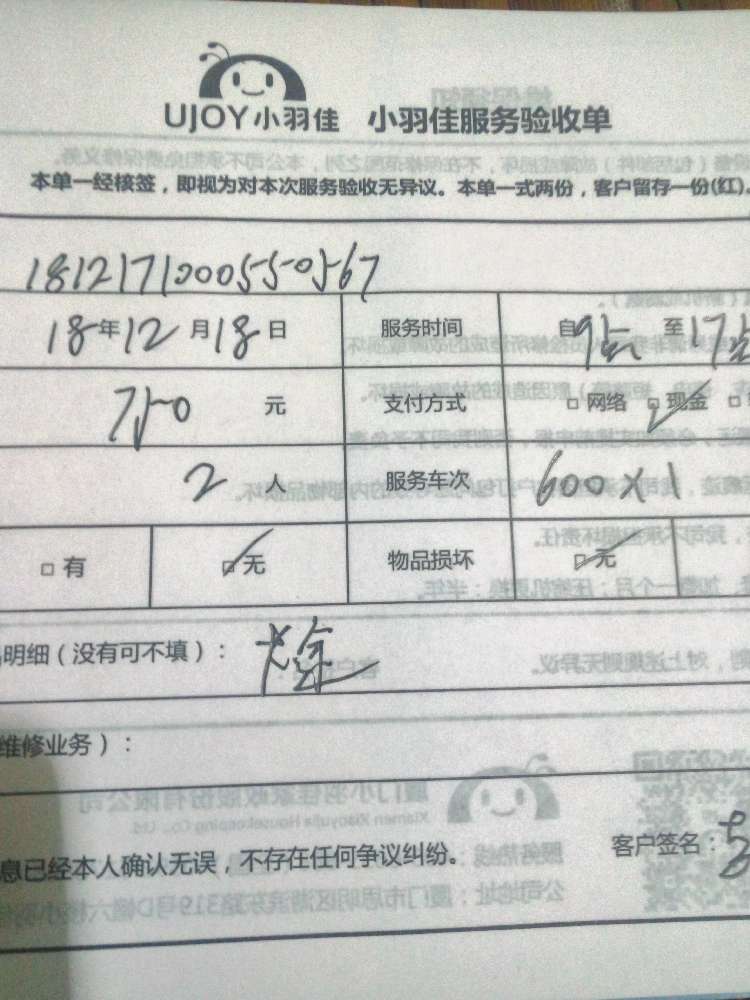 UJOY小羽佳 小羽佳服务验收单
本单一经核签，即视为对本次服务验收无异议。本单一式两份，客户留存一份(红)。
1812171000550567
18年12月18日 服务时间 自9点 至17点
750 元 支付方式 □网络 ☑现金 □
2 人 服务车次 600×1
□有 ☑无 物品损坏 ☑无
明细（没有可不填）：
维修业务）：
息已经本人确认无误，不存在任何争议纠纷。 客户签名：